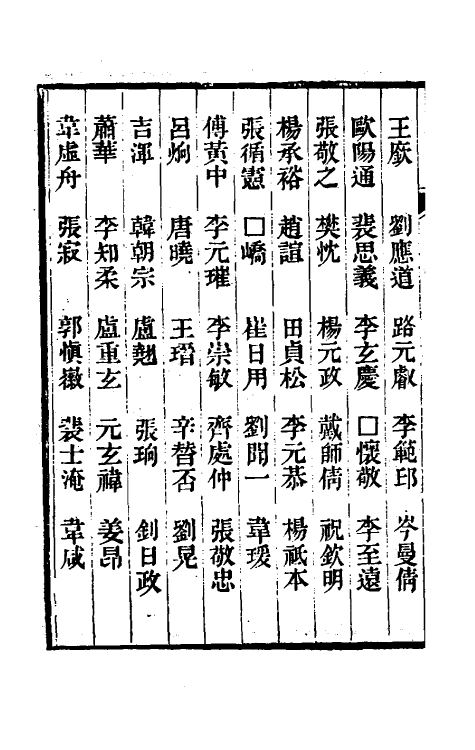 王𢈪 劉應道 路元叡 李範邱 岑曼倩
歐陽通 裴思義 李玄慶 □懷敬 李至遠
張敬之 樊忱 楊元政 戴師倩 祝欽明
楊承裕 趙誼 田貞松 李元恭 楊祗本
張循憲 □嶠 崔日用 劉聞一 韋瑗
傅黃中 李元璀 李崇敏 齊處仲 張敬忠
呂炯 唐曉 王琄 辛替否 劉晃
吉渾 韓朝宗 盧翹 張珣 釗日政
蕭華 李知柔 盧重玄 元玄禕 姜昂
韋虛舟 張寂 郭愼微 裴士淹 韋咸